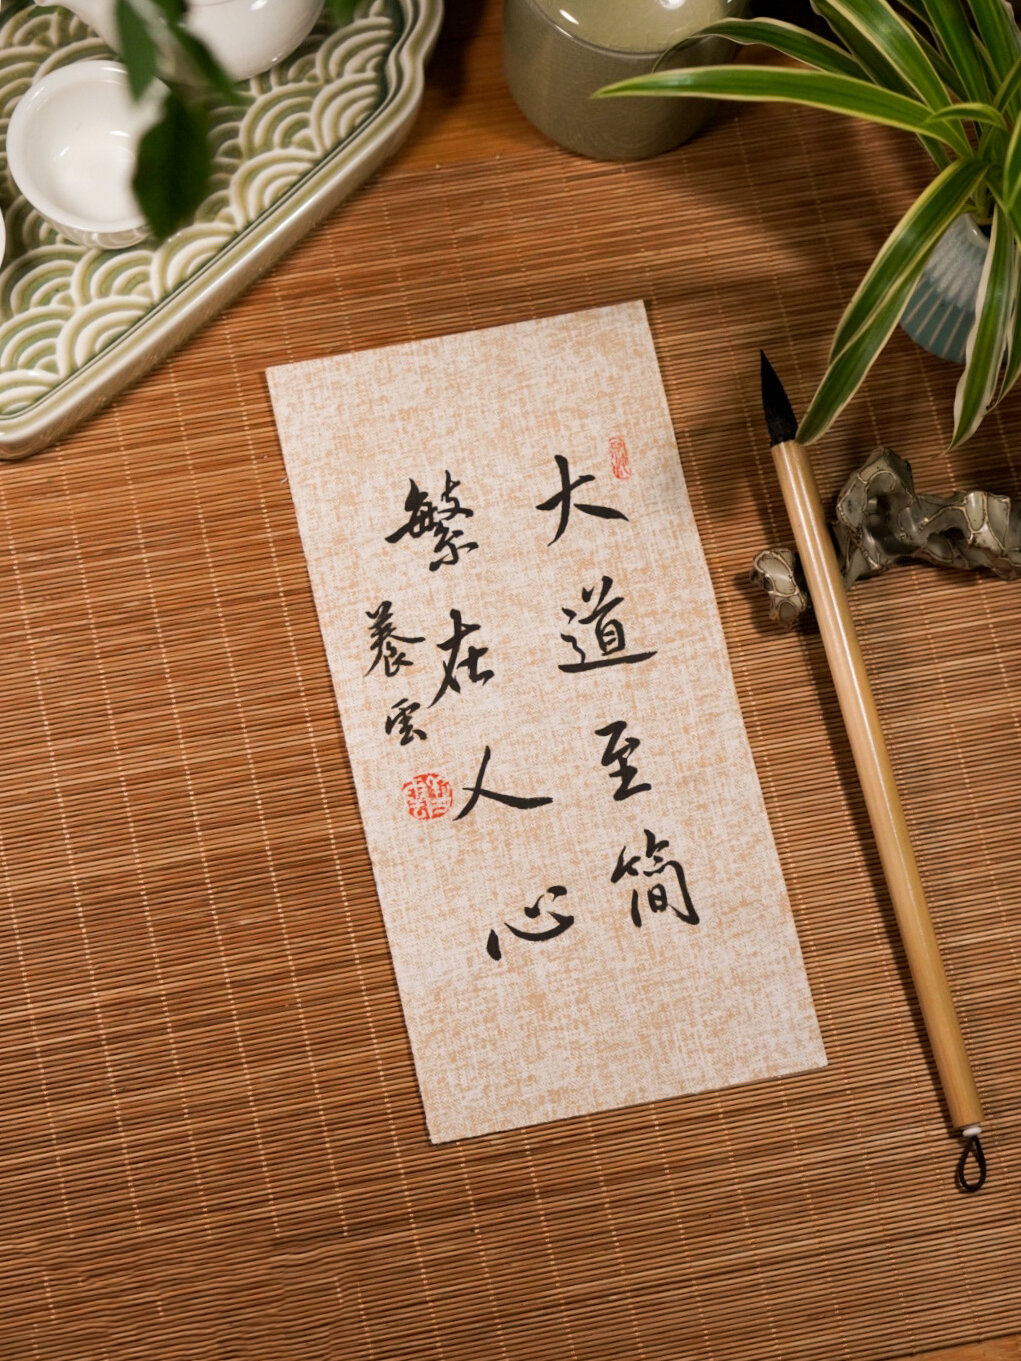 大道至简
繁在人心
養雲